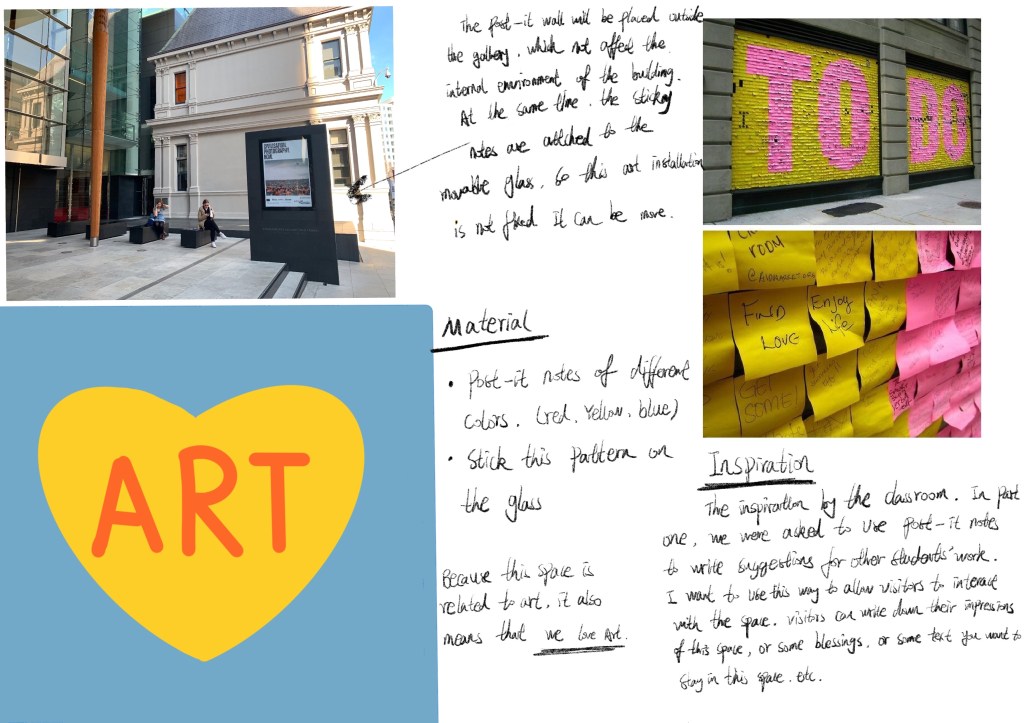 The post-it wall will be placed outside
the gallery, which not affect the
internal environment of the building.
At the same time, the sticky
notes are attched to the
movable glass, so this art installation
is not fixed it can be move.
TO DO
ROOM
FIND
LOVE
Enjoy
life
GET
SOME
ART
Material
• Post-it notes of different
colors. (red, Yellow, blue)
• Stick this pattern on
the glass
Because this space is
related to art, it also
means that we love Art.
Inspiration
The inspiration by the classroom. In part
one, we were asked to use post-it notes
to write suggestions for other students' work.
I want to use this way to allow visitors to interact
with the space. visitors can write down their impressions
of this space, or some blessings, or some text you want to
stay in this space. etc.